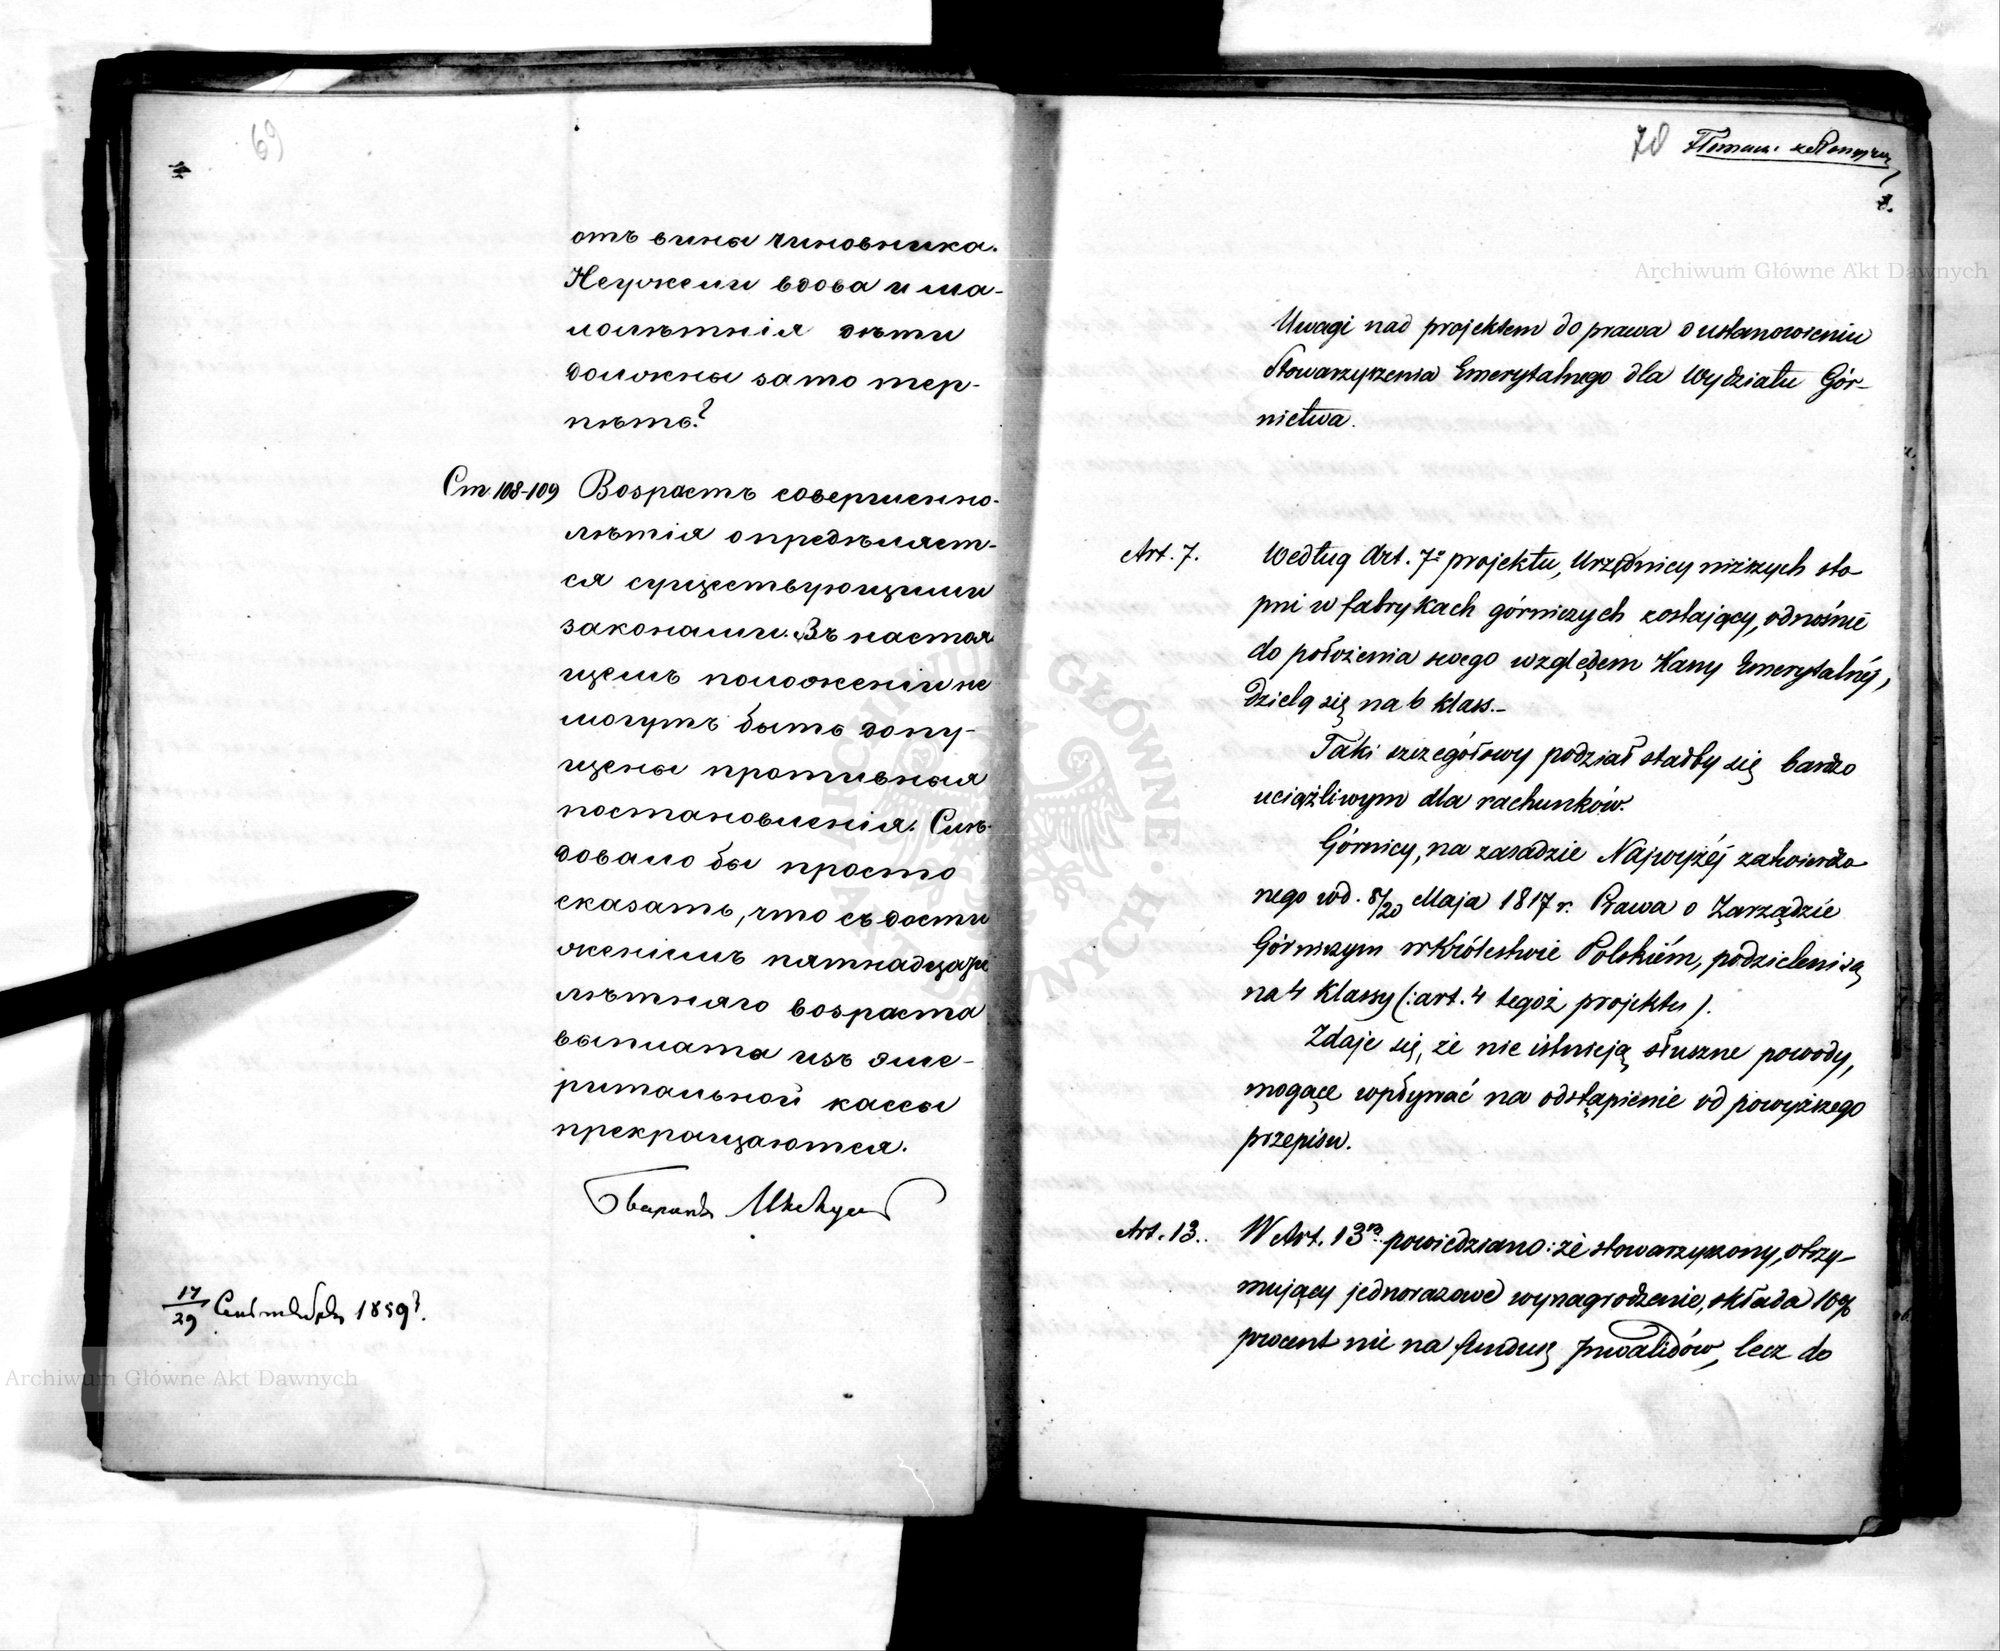 69
отъ вины чиновника.
Неужели вдова и ма-
лолѣтнія дѣти
должны за то тер-
пѣть?
Ст 108-109 Возрастъ совершенно-
лѣтія опредѣляет-
ся существующими
законами. Въ настоя
щемъ положеніи не
могутъ быть допу-
щены противныя
постановленія. Слѣ-
довало бы просто
сказать, что съ дости
женіемъ пятнадцати
лѣтняго возраста
выплата изъ эме-
ритальной кассы
прекращаются.
17/29 Сентября 1859
Archiwum Główne Akt Dawnych
70
Archiwum Główne Akt Dawnych
Uwagi nad projektem do prawa o ustanowieniu
Stowarzyszenia Emerytalnego dla Wydziału Gór-
nictwa.
Art. 7. Według Art. 7º projektu, Urzędnicy niższych sto
pni w fabrykach górniczych zostający, odnośnie
do położenia swego względem Kassy Emerytalnéj,
dzielą się na 6 klass.-
Taki szczegółowy podział stałby się bardzo
uciążliwym dla rachunków.
Górnicy, na zasadzie Najwyżéj zatwierdzo
nego w d. 8/20 Maja 1817 r. Prawa o Zarządzie
Górniczym w Królestwie Polskiém, podzieleni są
na 4 Klassy (: art. 4 tegoż projektu ).
Zdaje się, że nie istnieją słuszne powody,
mogące wpływać na odstąpienie od powyższego
przepisu.
Art. 13. W Art. 13m powiedziano: że stowarzyszony, otrzy-
mujący jednorazowe wynagrodzenie, składa 10%
procent nie na fundusz Inwalidów, lecz do
ARCHIWUM GŁÓWNE AKT DAWNYCH